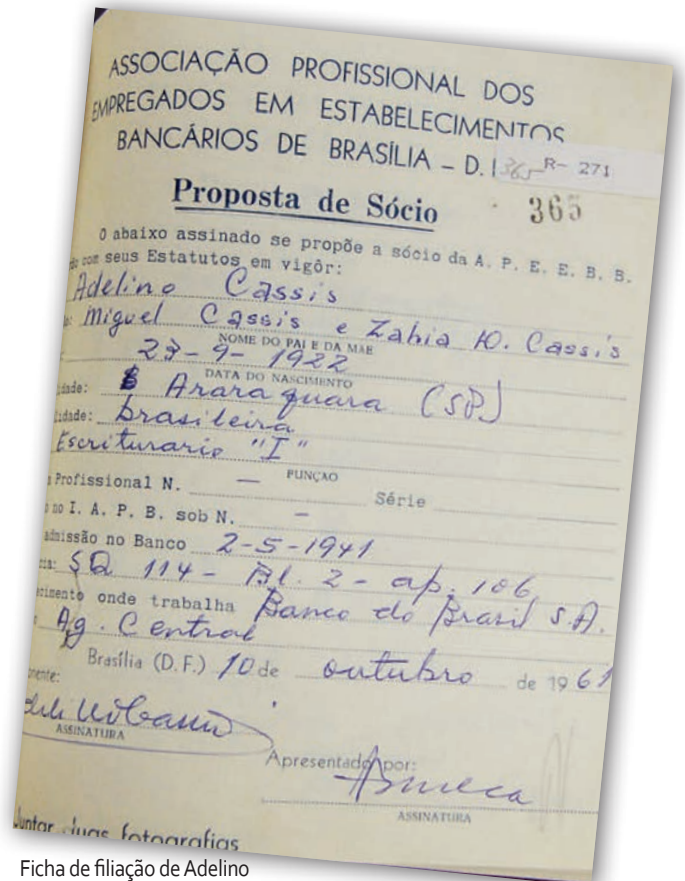 ASSOCIAÇÃO PROFISSIONAL DOS
EMPREGADOS EM ESTABELECIMENTOS
BANCÁRIOS DE BRASÍLIA – D.
365 R- 271
Proposta de Sócio
365
O abaixo assinado se propõe a sócio da A. P. E. E. B. B.
com seus Estatutos em vigôr:
Adelino Cassis
Miguel Cassis e Zahia Cassis
NOME DO PAI E DA MÃE
-9-1922
DATA DO NASCIMENTO
idade: Araraquara (SP)
idade: brasileira
Escriturario "I"
FUNÇÃO
Profissional N. — Série
no I. A. P. B. sob N. –
admissão no Banco 2-5-1941
SQ 114 - Bl. 2 - ap. 106
ecimento onde trabalha Banco do Brasil S.A.
Ag. Central
Brasília (D. F.) 10 de outubro de 1961
onente:
ASSINATURA
Apresentado por:
ASSINATURA
Juntar duas fotografias
Ficha de filiação de Adelino